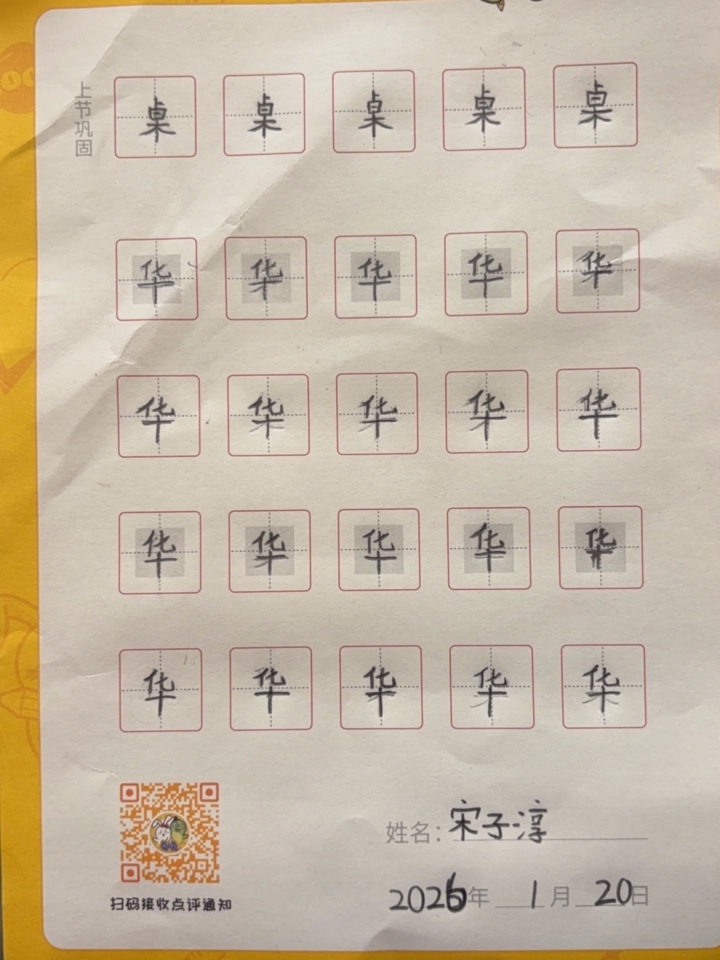 上节巩固
桌 桌 桌 桌 桌
华 华 华 华 华
华 华 华 华 华
华 华 华 华 华
华 华 华 华 华
姓名：宋子淳
2026年 1月 20日
扫码接收点评通知